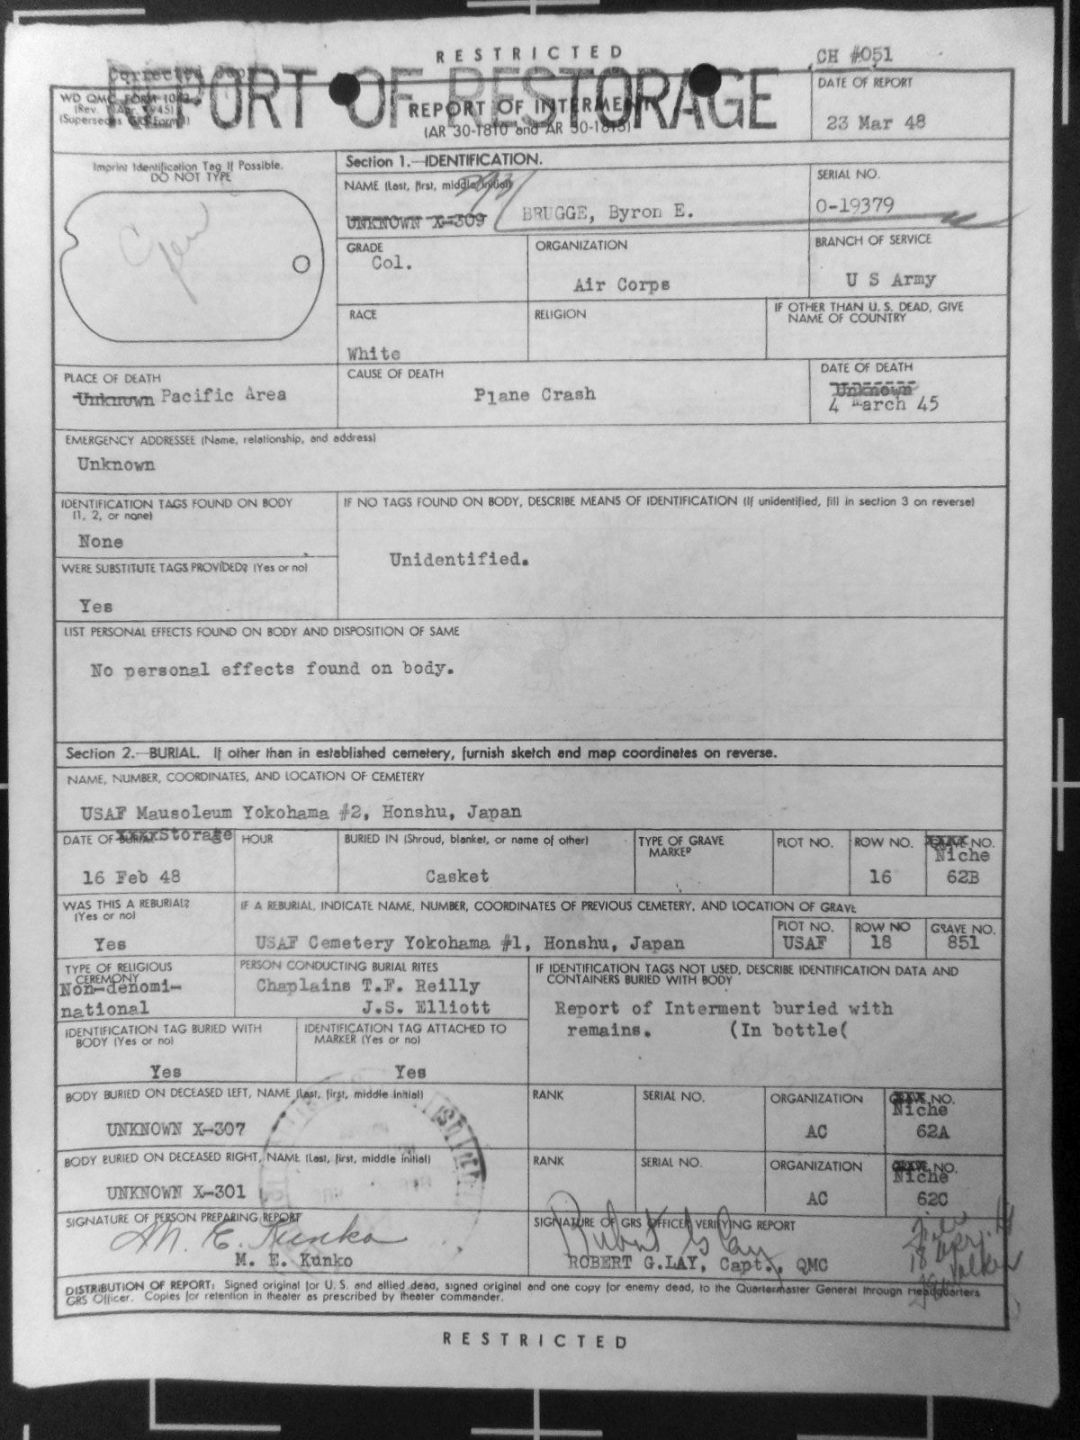 RESTRICTED
CH #051
Corrected Copy
REPORT OF RESTORAGE
WD QMC FORM 1042
(Rev. Apr. 1945)
(Supersedes GRS Form 1)
REPORT OF INTERMENT
(AR 30-1810 and AR 30-1815)
DATE OF REPORT
23 Mar 48
Imprint Identification Tag If Possible.
DO NOT TYPE
Section 1.—IDENTIFICATION.
NAME (Last, first, middle initial)
UNKNOWN X-309
BRUGGE, Byron E.
SERIAL NO.
O-19379
GRADE
Col.
ORGANIZATION
Air Corps
BRANCH OF SERVICE
U S Army
RACE
White
RELIGION
IF OTHER THAN U. S. DEAD, GIVE
NAME OF COUNTRY
PLACE OF DEATH
Unknown Pacific Area
CAUSE OF DEATH
Plane Crash
DATE OF DEATH
Unknown
4 March 45
EMERGENCY ADDRESSEE (Name, relationship, and address)
Unknown
IDENTIFICATION TAGS FOUND ON BODY
(1, 2, or none)
None
IF NO TAGS FOUND ON BODY, DESCRIBE MEANS OF IDENTIFICATION (If unidentified, fill in section 3 on reverse)
Unidentified.
WERE SUBSTITUTE TAGS PROVIDED? (Yes or no)
Yes
LIST PERSONAL EFFECTS FOUND ON BODY AND DISPOSITION OF SAME
No personal effects found on body.
Section 2.—BURIAL. If other than in established cemetery, furnish sketch and map coordinates on reverse.
NAME, NUMBER, COORDINATES, AND LOCATION OF CEMETERY
USAF Mausoleum Yokohama #2, Honshu, Japan
DATE OF BURIAL xxxxStorage
16 Feb 48
HOUR
BURIED IN (Shroud, blanket, or name of other)
Casket
TYPE OF GRAVE
MARKER
PLOT NO.
ROW NO.
16
GRAVE NO.
Niche
62B
WAS THIS A REBURIAL?
(Yes or no)
Yes
IF A REBURIAL, INDICATE NAME, NUMBER, COORDINATES OF PREVIOUS CEMETERY, AND LOCATION OF GRAVE
USAF Cemetery Yokohama #1, Honshu, Japan
PLOT NO.
USAF
ROW NO
18
GRAVE NO.
851
TYPE OF RELIGIOUS
CEREMONY
Non-denomi-
national
PERSON CONDUCTING BURIAL RITES
Chaplains T.F. Reilly
J.S. Elliott
IF IDENTIFICATION TAGS NOT USED, DESCRIBE IDENTIFICATION DATA AND
CONTAINERS BURIED WITH BODY
Report of Interment buried with
remains. (In bottle(
IDENTIFICATION TAG BURIED WITH
BODY (Yes or no)
Yes
IDENTIFICATION TAG ATTACHED TO
MARKER (Yes or no)
Yes
BODY BURIED ON DECEASED LEFT, NAME (Last, first, middle initial)
UNKNOWN X-307
RANK
SERIAL NO.
ORGANIZATION
AC
GRAVE NO.
Niche
62A
BODY BURIED ON DECEASED RIGHT, NAME (Last, first, middle initial)
UNKNOWN X-301
RANK
SERIAL NO.
ORGANIZATION
AC
GRAVE NO.
Niche
62C
SIGNATURE OF PERSON PREPARING REPORT
M. E. Kunko
M. E. Kunko
SIGNATURE OF GRS OFFICER VERIFYING REPORT
Robert G Lay
ROBERT G.LAY, Capt., QMC
File
18 Apr. 48
Walker
DISTRIBUTION OF REPORT: Signed original for U. S. and allied dead, signed original and one copy for enemy dead, to the Quartermaster General through Headquarters
GRS Officer. Copies for retention in theater as prescribed by theater commander.
RESTRICTED